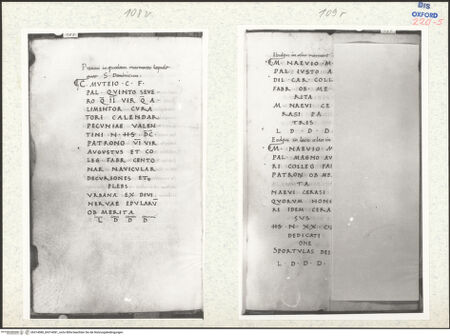 108v
109r
BIS
OXFORD
220-5
Pisauri in quodam marmoreo lapide
apud S. Dominicum.
C. MVTEIO C. F.
PAL QVINTO SEVE
RO Q II VIR Q A
LIMENTOR CVRA
TORI CALENDAR
PECVNIAE VALEN
TINI N HS DC
PATRONO VI VIR
AVGVSTVS ET CO
LEG FABR CENTO
NAR NAVICVLAR
DECVRIONES ET
PLEBS
VRBANA EX DIVI
NERVAE EPVLARV
OB MERITA
L D D D
Eiusdem in alio marmore
M. NAEVIO M.
PAL IVSTO A
DIL CAR COLL
FABR OB ME
RITA
M NAEVI CE
RASI PA
TRIS
L D D D
Eiusdem in loco
M. NAEVIO M
PAL MAGNO AV
RI COLLEG FAB
PATRON OB ME
TA
NAEVI CERASI
QVORVM HONO
RI IDEM CERA
SVS
HS N XX CIS
DEDICATI
ONE
SPORTVLAS DE
L D D D